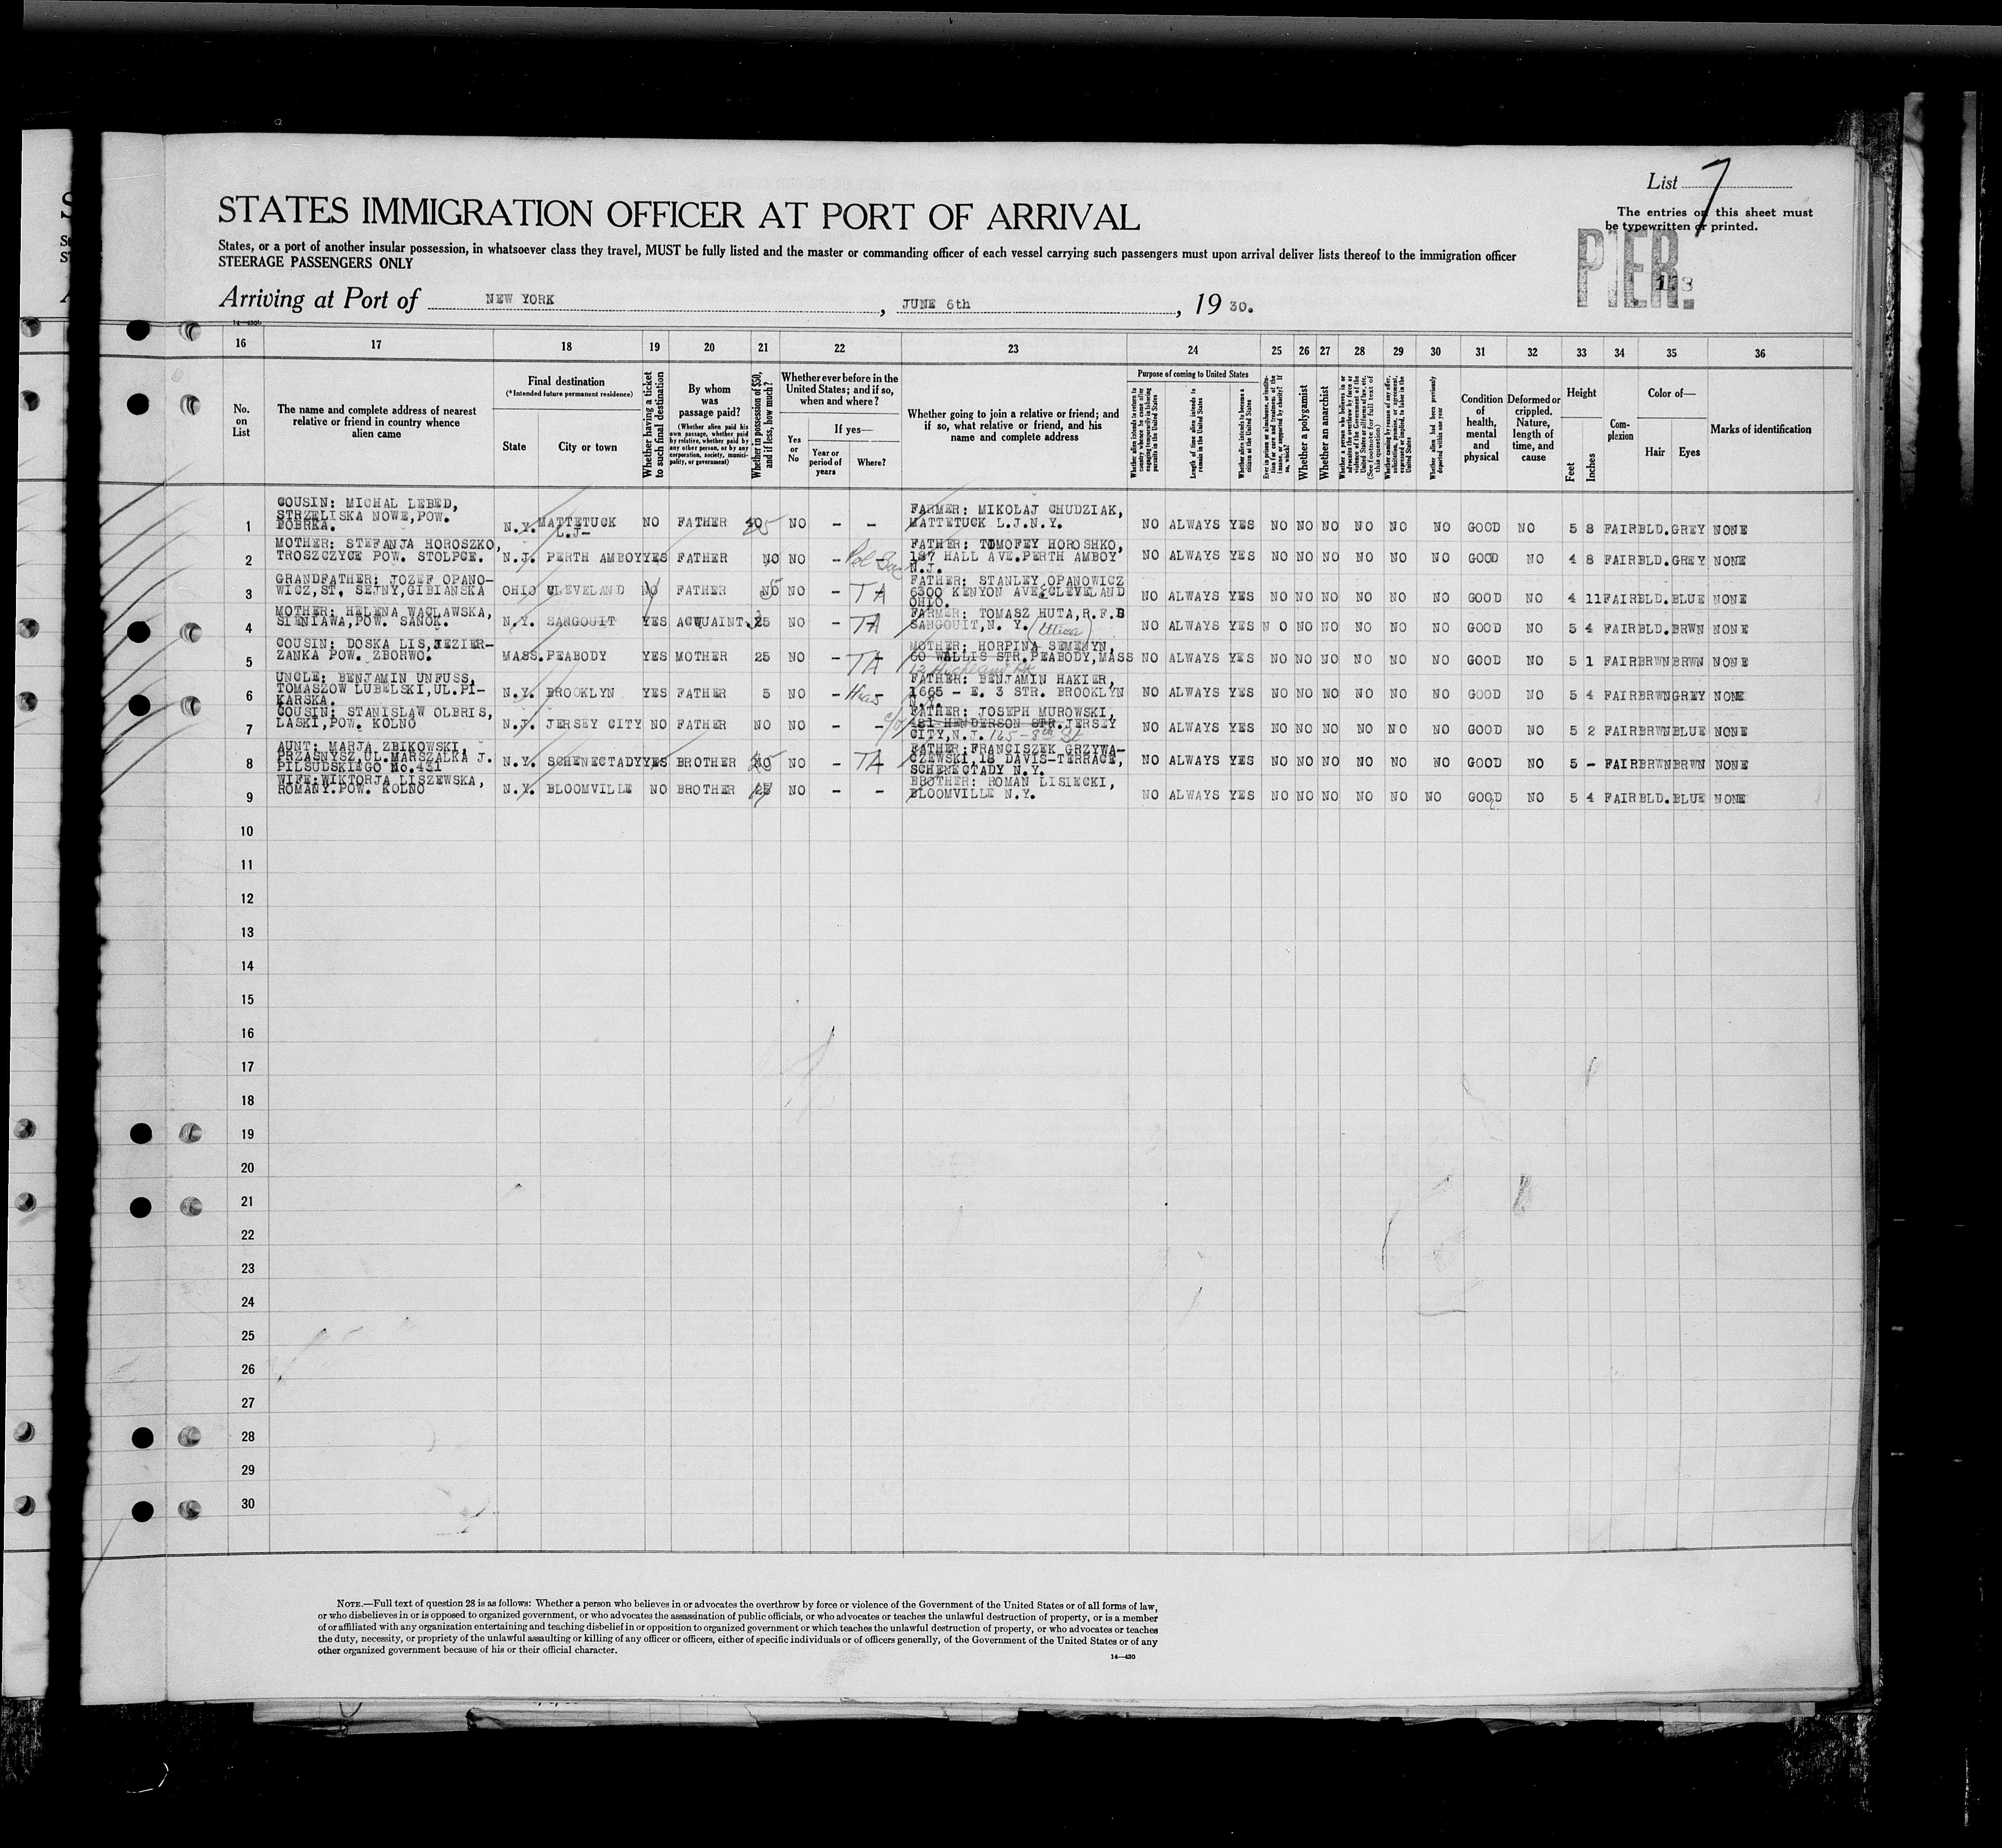 List 7
The entries on this sheet must
be typewritten or printed.
PIER.
STATES IMMIGRATION OFFICER AT PORT OF ARRIVAL
States, or a port of another insular possession, in whatsoever class they travel, MUST be fully listed and the master or commanding officer of each vessel carrying such passengers must upon arrival deliver lists thereof to the immigration officer
STEERAGE PASSENGERS ONLY
Arriving at Port of NEW YORK, JUNE 6th, 19 30.
16 17 18 19 20 21 22 23 24 25 26 27 28 29 30 31 32 33 34 35 36
No.
on
List
The name and complete address of nearest
relative or friend in country whence
alien came
Final destination
(*Intended future permanent residence)
State
City or town
Whether having a ticket
to such final destination
By whom
was
passage paid?
(Whether alien paid his
own passage, whether paid
by relative, whether paid by
any other person, or by any
corporation, society, munici-
pality, or government)
Whether in possession of $50,
and if less, how much?
Whether ever before in the
United States; and if so,
when and where?
Yes
or
No
If yes—
Year or
period of
years
Where?
Whether going to join a relative or friend; and
if so, what relative or friend, and his
name and complete address
Purpose of coming to United States
Whether alien intends to return to
country whence he came after
engaging temporarily in laboring
pursuits in the United States
Length of time alien intends to
remain in the United States
Whether alien intends to become a
citizen of the United States
Whether a polygamist
Whether an anarchist
Whether a person who believes in or
advocates the overthrow by force or
violence of the Government of the
United States or all forms of law, etc.
(See footnote for full text of
this question)
Whether coming by reason of any offer,
solicitation, promise, or agreement,
expressed or implied, to labor in the
United States
Whether alien had been previously
deported within one year
Condition
of
health,
mental
and
physical
Deformed or
crippled.
Nature,
length of
time, and
cause
Height
Feet
Inches
Com-
plexion
Color of—
Hair
Eyes
Marks of identification
1 COUSIN: MICHAL LEBED,
STRZELISKA NOWE,POW.
BOBRKA.
N.Y. MATTETUCK
L.J-
NO FATHER 25 NO - -
FARMER: MIKOLAJ CHUDZIAK,
MATTETUCK L.J.N.Y.
NO ALWAYS YES NO NO NO NO NO NO GOOD NO 5 8 FAIR BLD. GREY NONE
2 MOTHER: STEFANJA HOROSZKO,
TROSZCZYCE POW. STOLPCE.
N.J. PERTH AMBOY YES FATHER NO NO -
FATHER: TIMOFEY HOROSHKO,
187 HALL AVE.PERTH AMBOY
N.J.
NO ALWAYS YES NO NO NO NO NO NO GOOD NO 4 8 FAIR BLD. GREY NONE
3 GRANDFATHER: JOZEF OPANO-
WICZ,ST. SEJNY,GIBIANSKA
OHIO CLEVELAND NO FATHER 5 NO - TA
FATHER: STANLEY OPANOWICZ
6300 KENYON AVE.CLEVELAND
OHIO.
NO ALWAYS YES NO NO NO NO NO NO GOOD NO 4 11 FAIR BLD. BLUE NONE
4 MOTHER: HELENA WACLAWSKA,
SIENIAWA,POW. SANOK.
N.Y. SANGOUIT YES ACQUAINT. 25 NO - TA
FARMER: TOMASZ HUTA,R.F.B
SANGOUIT,N. Y. (Utica)
NO ALWAYS YES N O NO NO NO NO NO GOOD NO 5 4 FAIR BLD. BRWN NONE
5 COUSIN: DOSKA LIS,JEZIER-
ZANKA POW. ZBORWO.
MASS. PEABODY YES MOTHER 25 NO - TA
MOTHER: HORPINA SEMENYN,
60 WALLIS STR.PEABODY,MASS
12 Highland Pk
NO ALWAYS YES NO NO NO NO NO NO GOOD NO 5 1 FAIR BRWN BRWN NONE
6 UNCLE: BENJAMIN UNFUSS,
TOMASZOW LUBELSKI,UL.PI-
KARSKA.
N.Y. BROOKLYN YES FATHER 5 NO - Hias
FATHER: BENJAMIN HAKIER,
1665 - E. 3 STR. BROOKLYN
N.Y.
NO ALWAYS YES NO NO NO NO NO NO GOOD NO 5 4 FAIR BRWN GREY NONE
7 COUSIN: STANISLAW OLBRIS,
LASKI,POW. KOLNO
N.J. JERSEY CITY NO FATHER NO NO - - c/o
FATHER: JOSEPH MUROWSKI,
481 HENDERSON STR.JERSEY
CITY,N.J. 165-8th St
NO ALWAYS YES NO NO NO NO NO NO GOOD NO 5 2 FAIR BRWN BLUE NONE
8 AUNT: MARJA ZBIKOWSKI,
PRZASNYSZ,UL.MARSZALKA J.
PILSUDSKIEGO No.431
N.Y. SCHENECTADY YES BROTHER NO - TA
FATHER:FRANCISZEK GRZYWA-
CZEWSKI,18 DAVIS-TERRACE,
SCHENECTADY N.Y.
NO ALWAYS YES NO NO NO NO NO NO GOOD NO 5 - FAIR BRWN BRWN NONE
9 WIFE:WIKTORJA LISZEWSKA,
ROMANY.POW. KOLNO
N.Y. BLOOMVILLE NO BROTHER NO - -
BROTHER: ROMAN LISIECKI,
BLOOMVILLE N.Y.
NO ALWAYS YES NO NO NO NO NO NO GOOD NO 5 4 FAIR BLD. BLUE NONE
10
11
12
13
14
15
16
17
18
19
20
21
22
23
24
25
26
27
28
29
30
NOTE.—Full text of question 28 is as follows: Whether a person who believes in or advocates the overthrow by force or violence of the Government of the United States or of all forms of law,
or who disbelieves in or is opposed to organized government, or who advocates the assassination of public officials, or who advocates or teaches the unlawful destruction of property, or is a member
of or affiliated with any organization entertaining and teaching disbelief in or opposition to organized government or which teaches the unlawful destruction of property, or who advocates or teaches
the duty, necessity, or propriety of the unlawful assaulting or killing of any officer or officers, either of specific individuals or of officers generally, of the Government of the United States or of any
other organized government because of his or their official character.
14—430